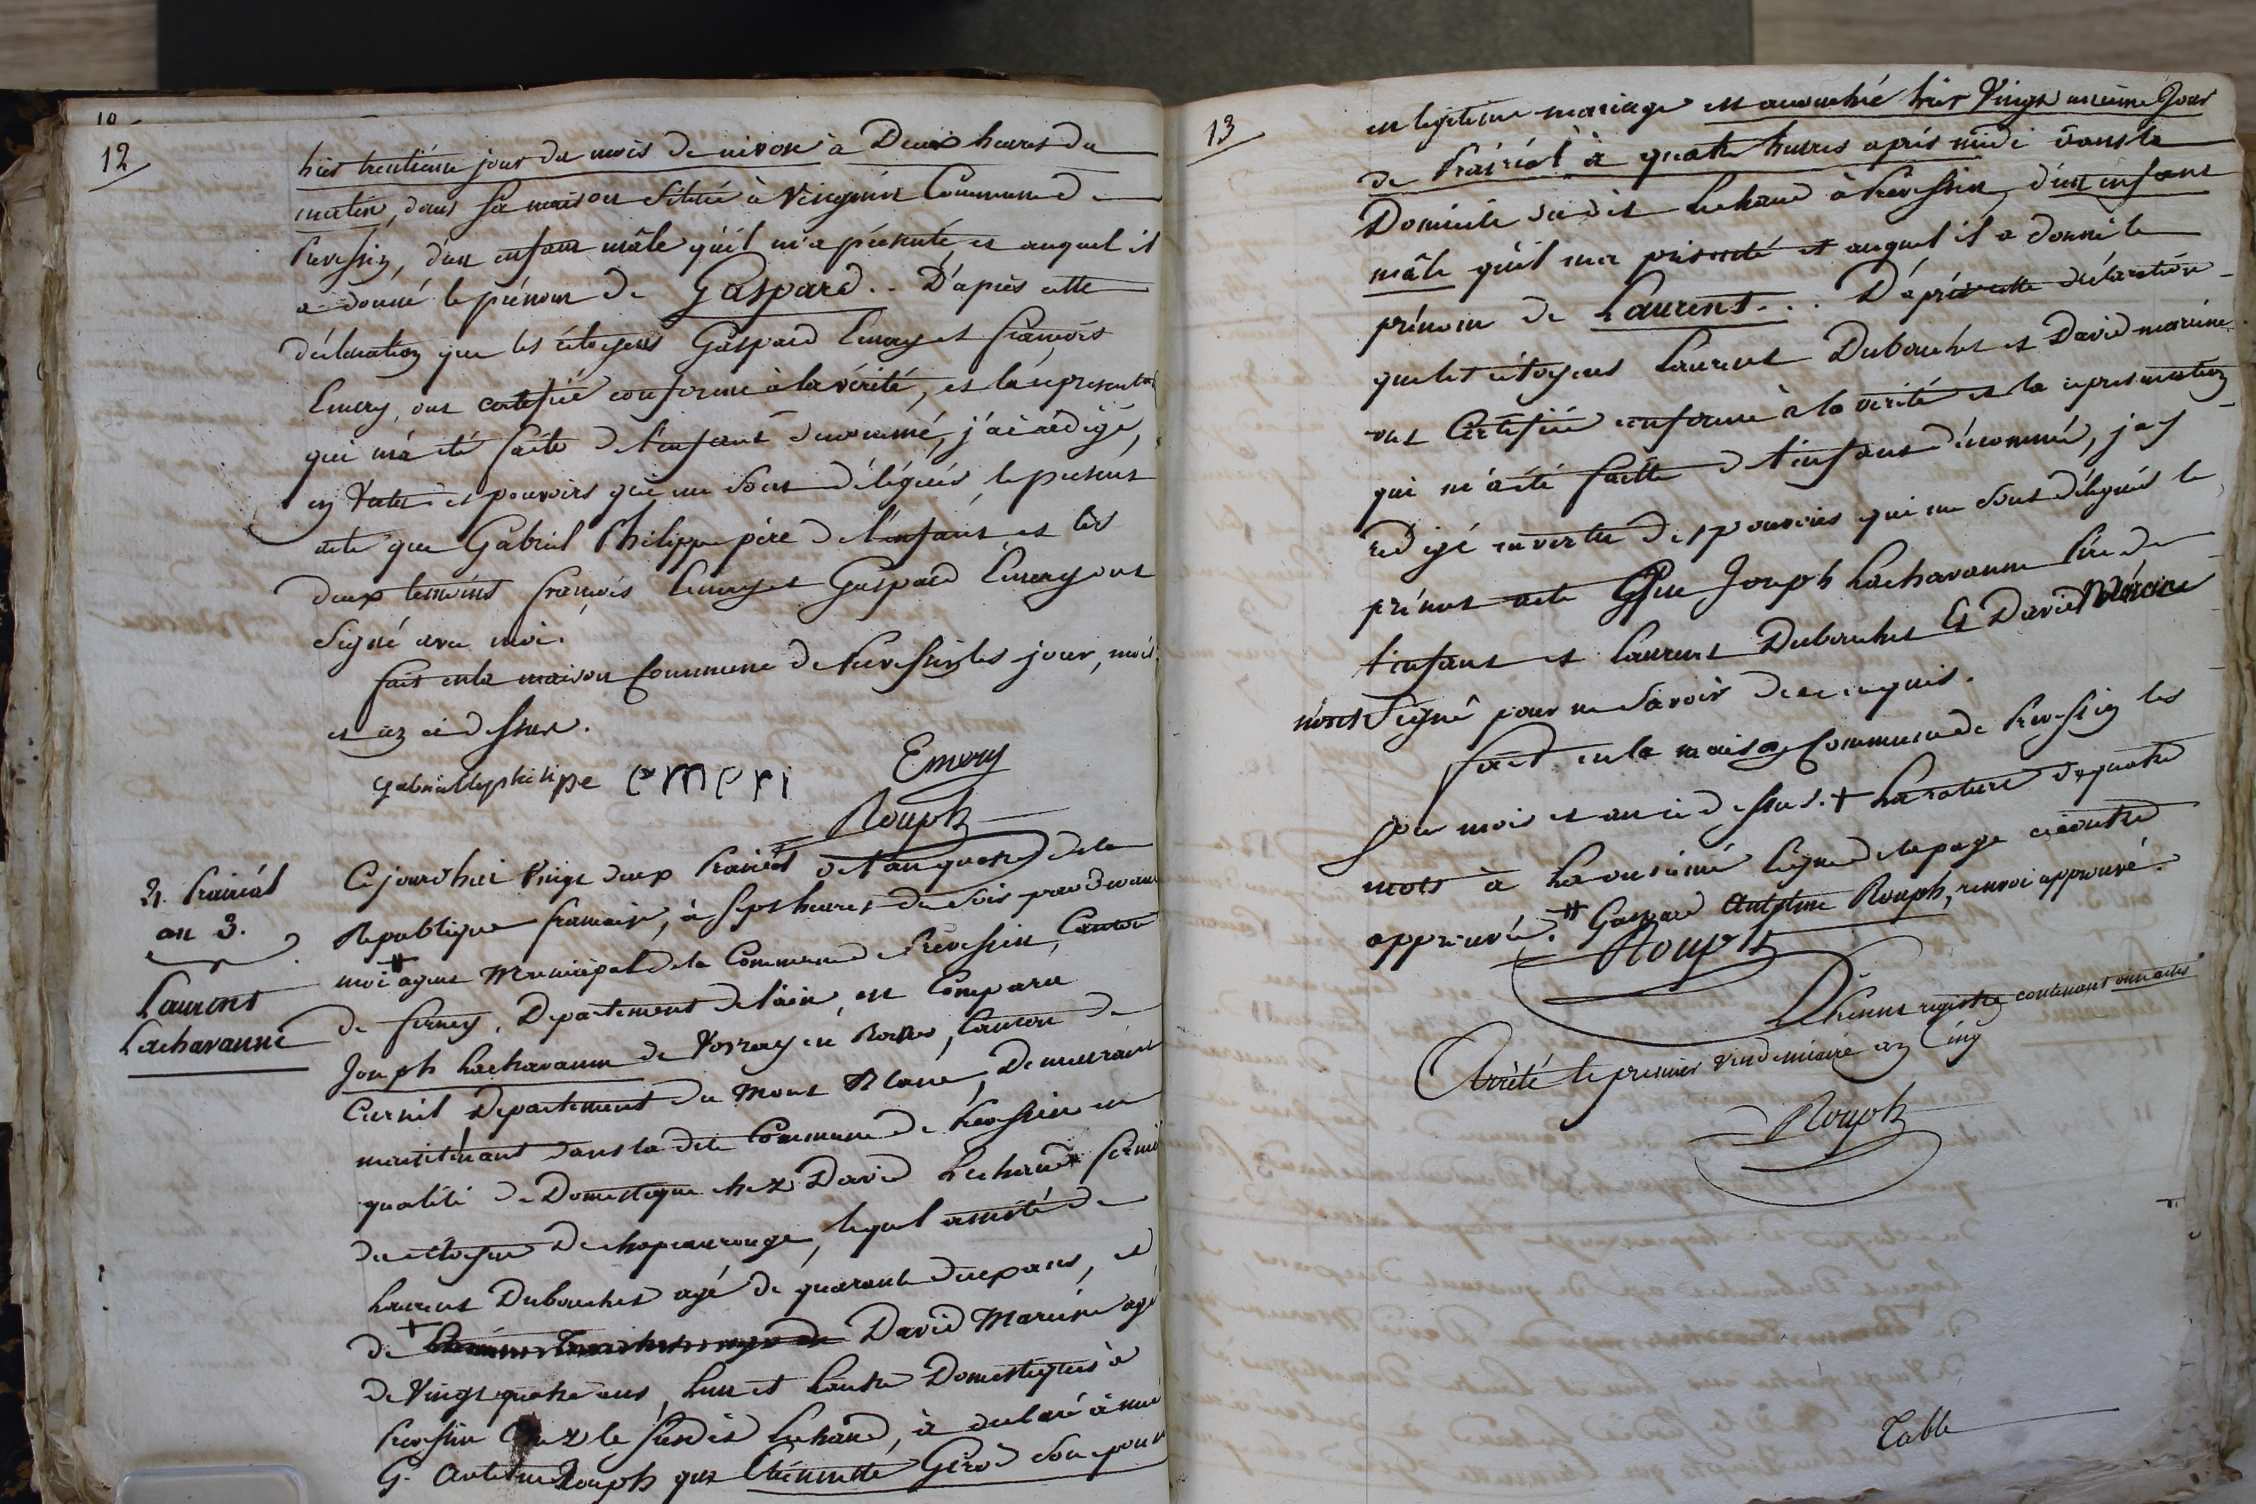 10
12
hier trentième jour du mois de nivose à Deux heures du
matin, dans sa maison située à Vesegnin Commune de
Prevessin, d'un enfant mâle qu'il m'a présenté, et auquel il
a donné le prénom de Gaspard.. D'après cette
déclaration que les citoyens Gaspard Emery et françois
Emery, ont certifié conforme à la vérité, et la représentat
qui m'a été faite de l'enfant dénommé, j'ai rédigé,
en Vertu des pouvoirs qui me sont délégués, le présent
acte que Gabriel Philippe père de l'enfant et les
deux temoins françois Emery et Gaspard Emery ont
signé avec moi.
fait en la maison Commune de Prevessin les jour, mois
et an ci dessus.
gabriell philipe emeri Emery
Rouph
21. Prairial
an 3.
Laurent
Lachavanne
Cejourd'hui Vingt deux Prairial de l'an quatre de la
Republique francaise, à sept heures du soir pardevant
moi # agent Municipal de la Commune de Prevessin, Canton
de ferney, Departement de l'ain, est Comparu
Joseph Lachavanne de Vovray en Bornes, Canton de
Cernil Departement du Mont Blanc, Demeurant
maintenant dans la dite Commune de Prevessin en
qualité de Domestique chez David Lechaud fermie
du citoyen Dechapeaurouge, lequel assisté de
Laurent Dubouchet agé de quarante deux ans, et
de + David Marcine agé
de Vingt quatre ans, l'un et l'autre Domestiques à
Prevessin Chez le susdit Lechaud, à declaré à moi
G. Antoine Rouph que Etiennette Gerod son epouse
13
en legitime mariage est accouchée hier Vingt unieme Jour
de Prairial à quatre heures après midi dans le
Domicile du dit Lechaud à Prevessin, d'un enfant
mâle qu'il m'a présenté et auquel il a donné le
prénom de Laurent... D'après cette déclaration
que les citoyens Laurent Dubouchet et David marcine
ont Certifié conforme à la verité et la representation
qui m'a été faitte de l'enfant dénommé, j'ay
redigé en vertu des pouvoirs qui me sont délégués le
présent acte Que Joseph Lachavanne Père de
l'enfant et Laurent Dubouchet Et David Marcine
n'ont Signé pour ne Savoir de ce enquis.
fait en la maison Commune de Prevessin les
jour mois et an ci dessus. + La rature de quatre
mots à La onzième ligne de la page ci contre
approuvée. # Gaspard Antoine Rouph, renvoi approuvé.
Rouph
Le présent registre contenant onze actes
Arrêté le premier Vendemiaire an Cinq
Rouph
Table